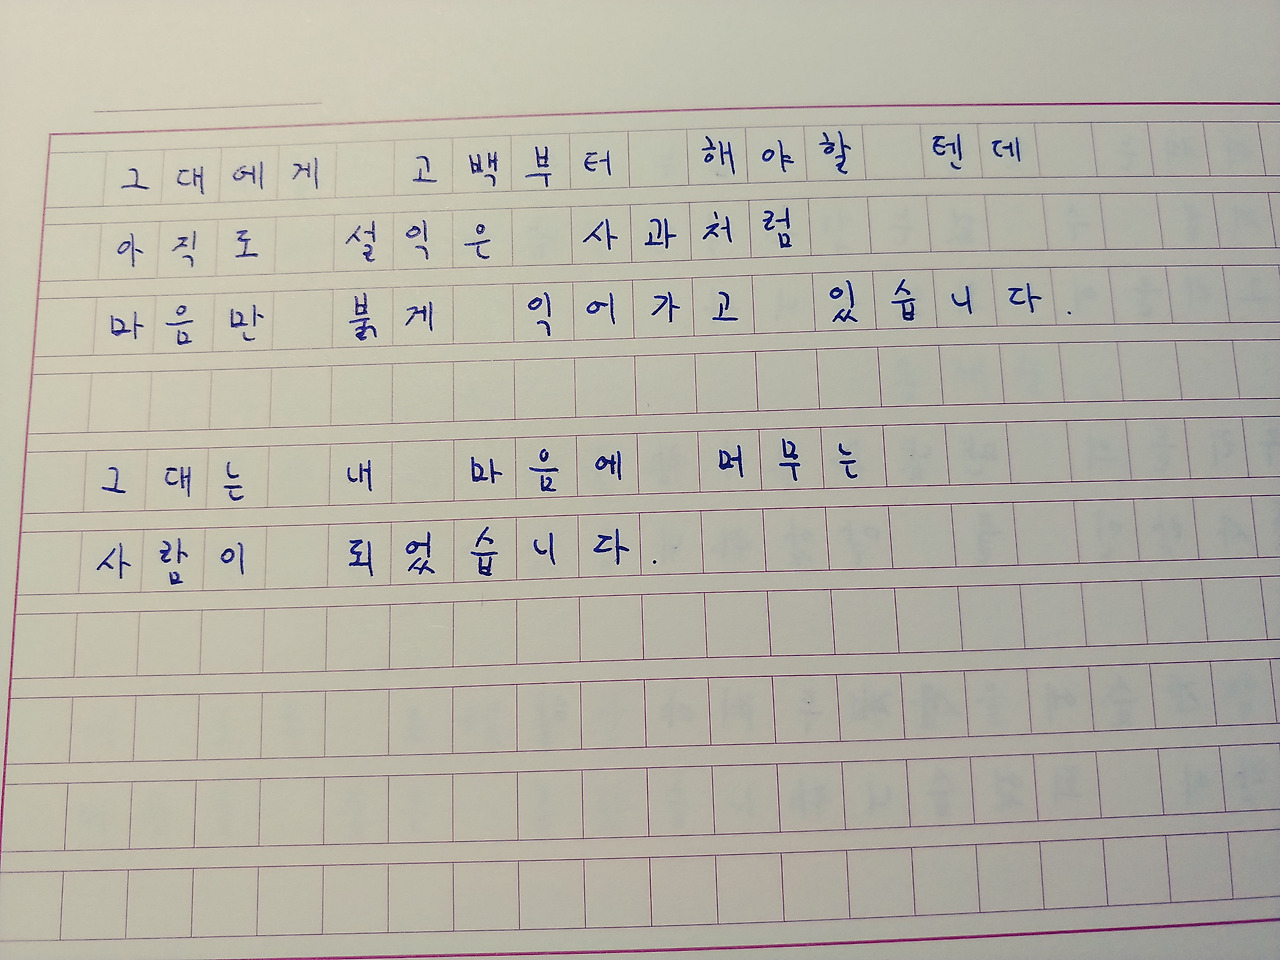 그대에게 고백부터 해야할 텐데
아직도 설익은 사과처럼
마음만 붉게 익어가고 있습니다.
그대는 내 마음에 머무는
사람이 되었습니다.